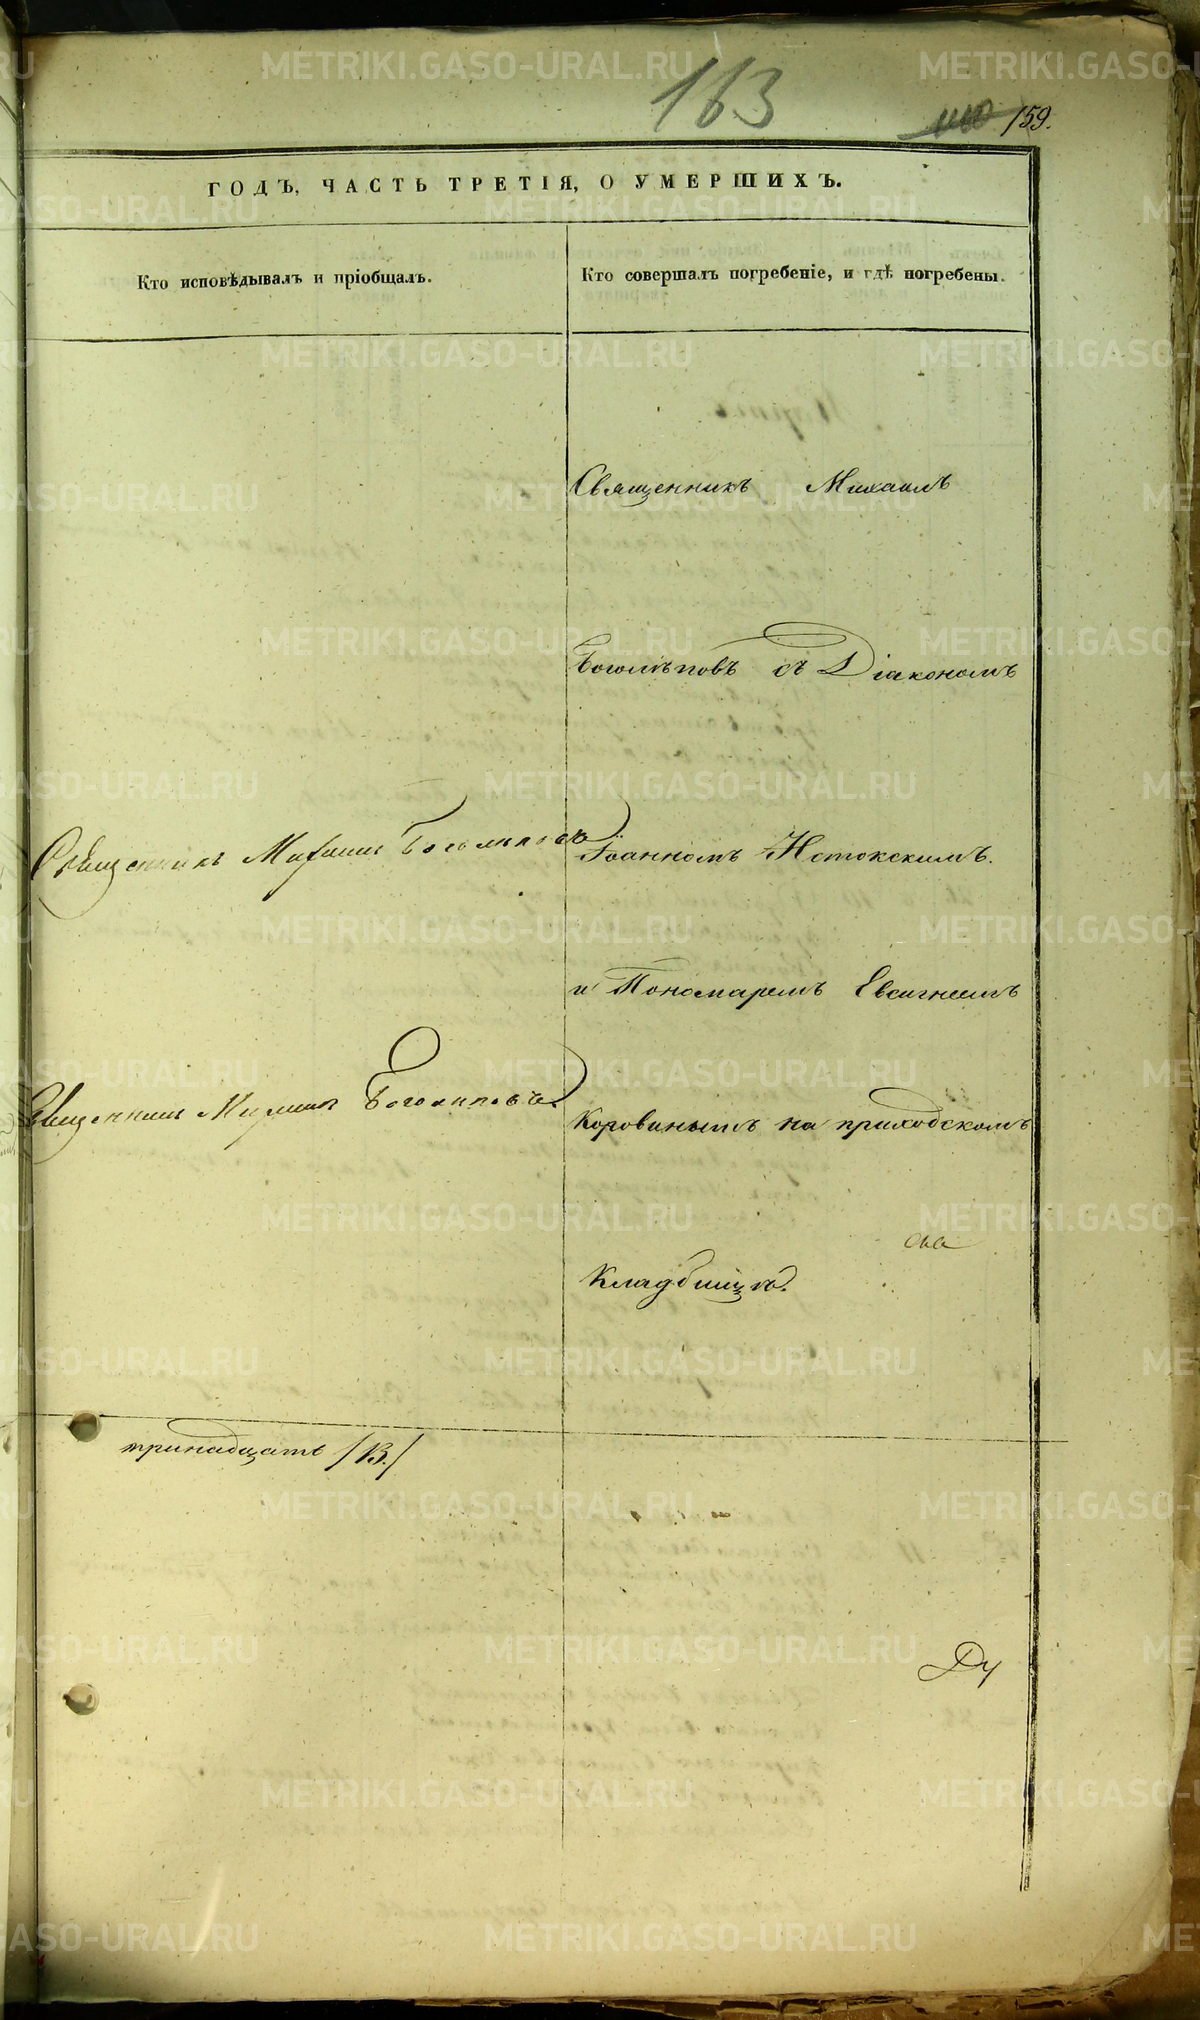 163
159.
ГОДЪ, ЧАСТЬ ТРЕТІЯ, О УМЕРШИХЪ.
Кто исповѣдывалъ и пріобщалъ.
Кто совершалъ погребеніе, и гдѣ погребены.
Священникъ Михаилъ
Боголѣповъ съ Діакономъ
Священникъ Михаилъ Боголѣповъ
Іоанномъ
и Пономаремъ Евсигнеемъ
Священникъ Михаилъ Боголѣповъ.
Коровинымъ на приходскомъ
Кладбищѣ.
тринадцать /13./
METRIKI.GASO-URAL.RU